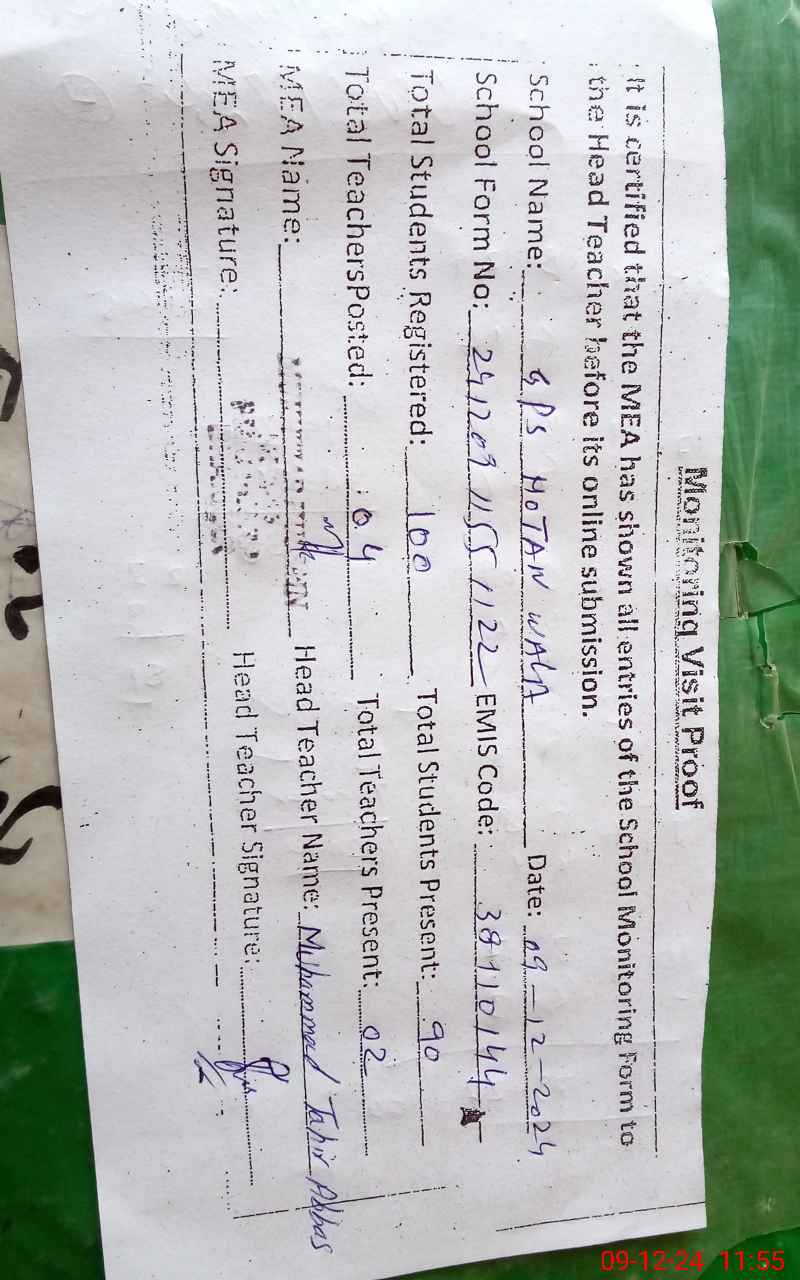 Monitoring Visit Proof
It is certified that the MEA has shown all entries of the School Monitoring Form to
the Head Teacher before its online submission.
School Name: GPS MOTAN WALA Date: 09-12-2024
School Form No: 241209 1155 1122 EMIS Code: 38110144
Total Students Registered: 100 Total Students Present: 90
Total TeachersPosted: 04 Total Teachers Present: 02
MEA Name: Head Teacher Name: Muhammad Tahir Abbas
MEA Signature: Head Teacher Signature:
09-12-24 11:55